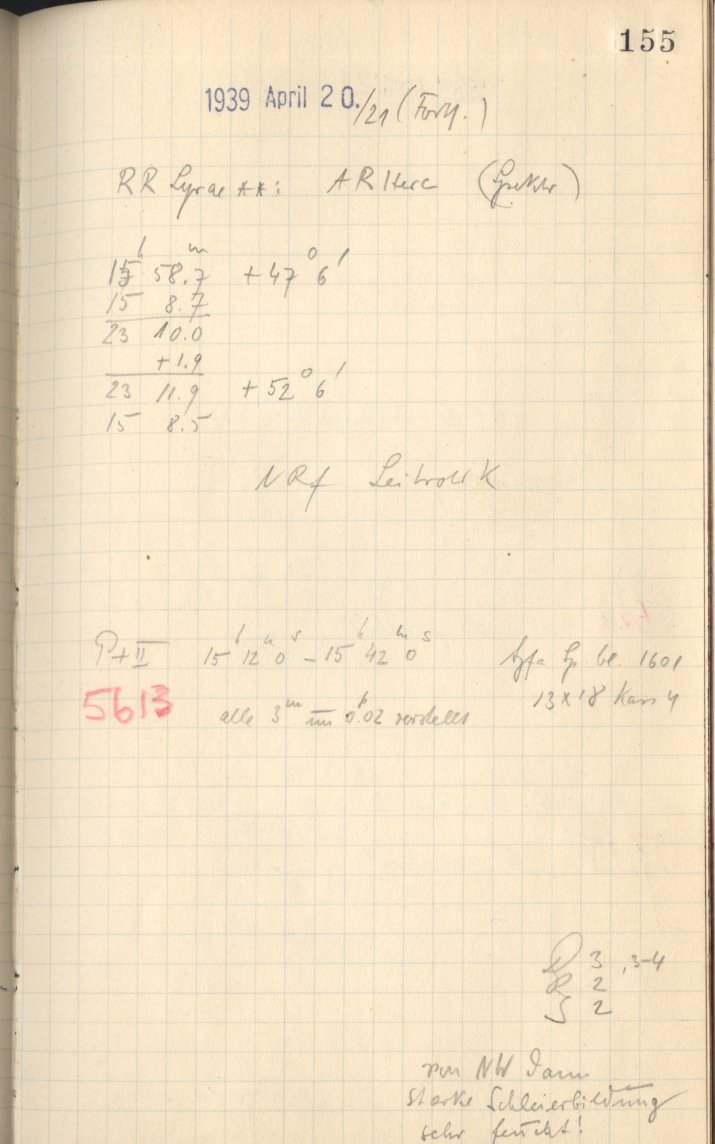 155
1939 April 20./21 (Forts.)
RR Lyrae **: AR Herc (Spektr)
15ʰ 58.7ᵐ +47° 6'
15 8.7
23 10.0
+1.9
23 11.9 +52° 6'
15 8.5
NRf Leitrohr K
P+II 15ʰ 12ᵐ 0ˢ – 15ʰ 42ᵐ 0ˢ Agfa Sp bl. 1601
13×18 Kass 4
5613 alle 3ᵐ um 0.02 verstellt
D 3, 3-4
R 2
S 2
von NW Dann
starke Schleierbildung
sehr feucht!